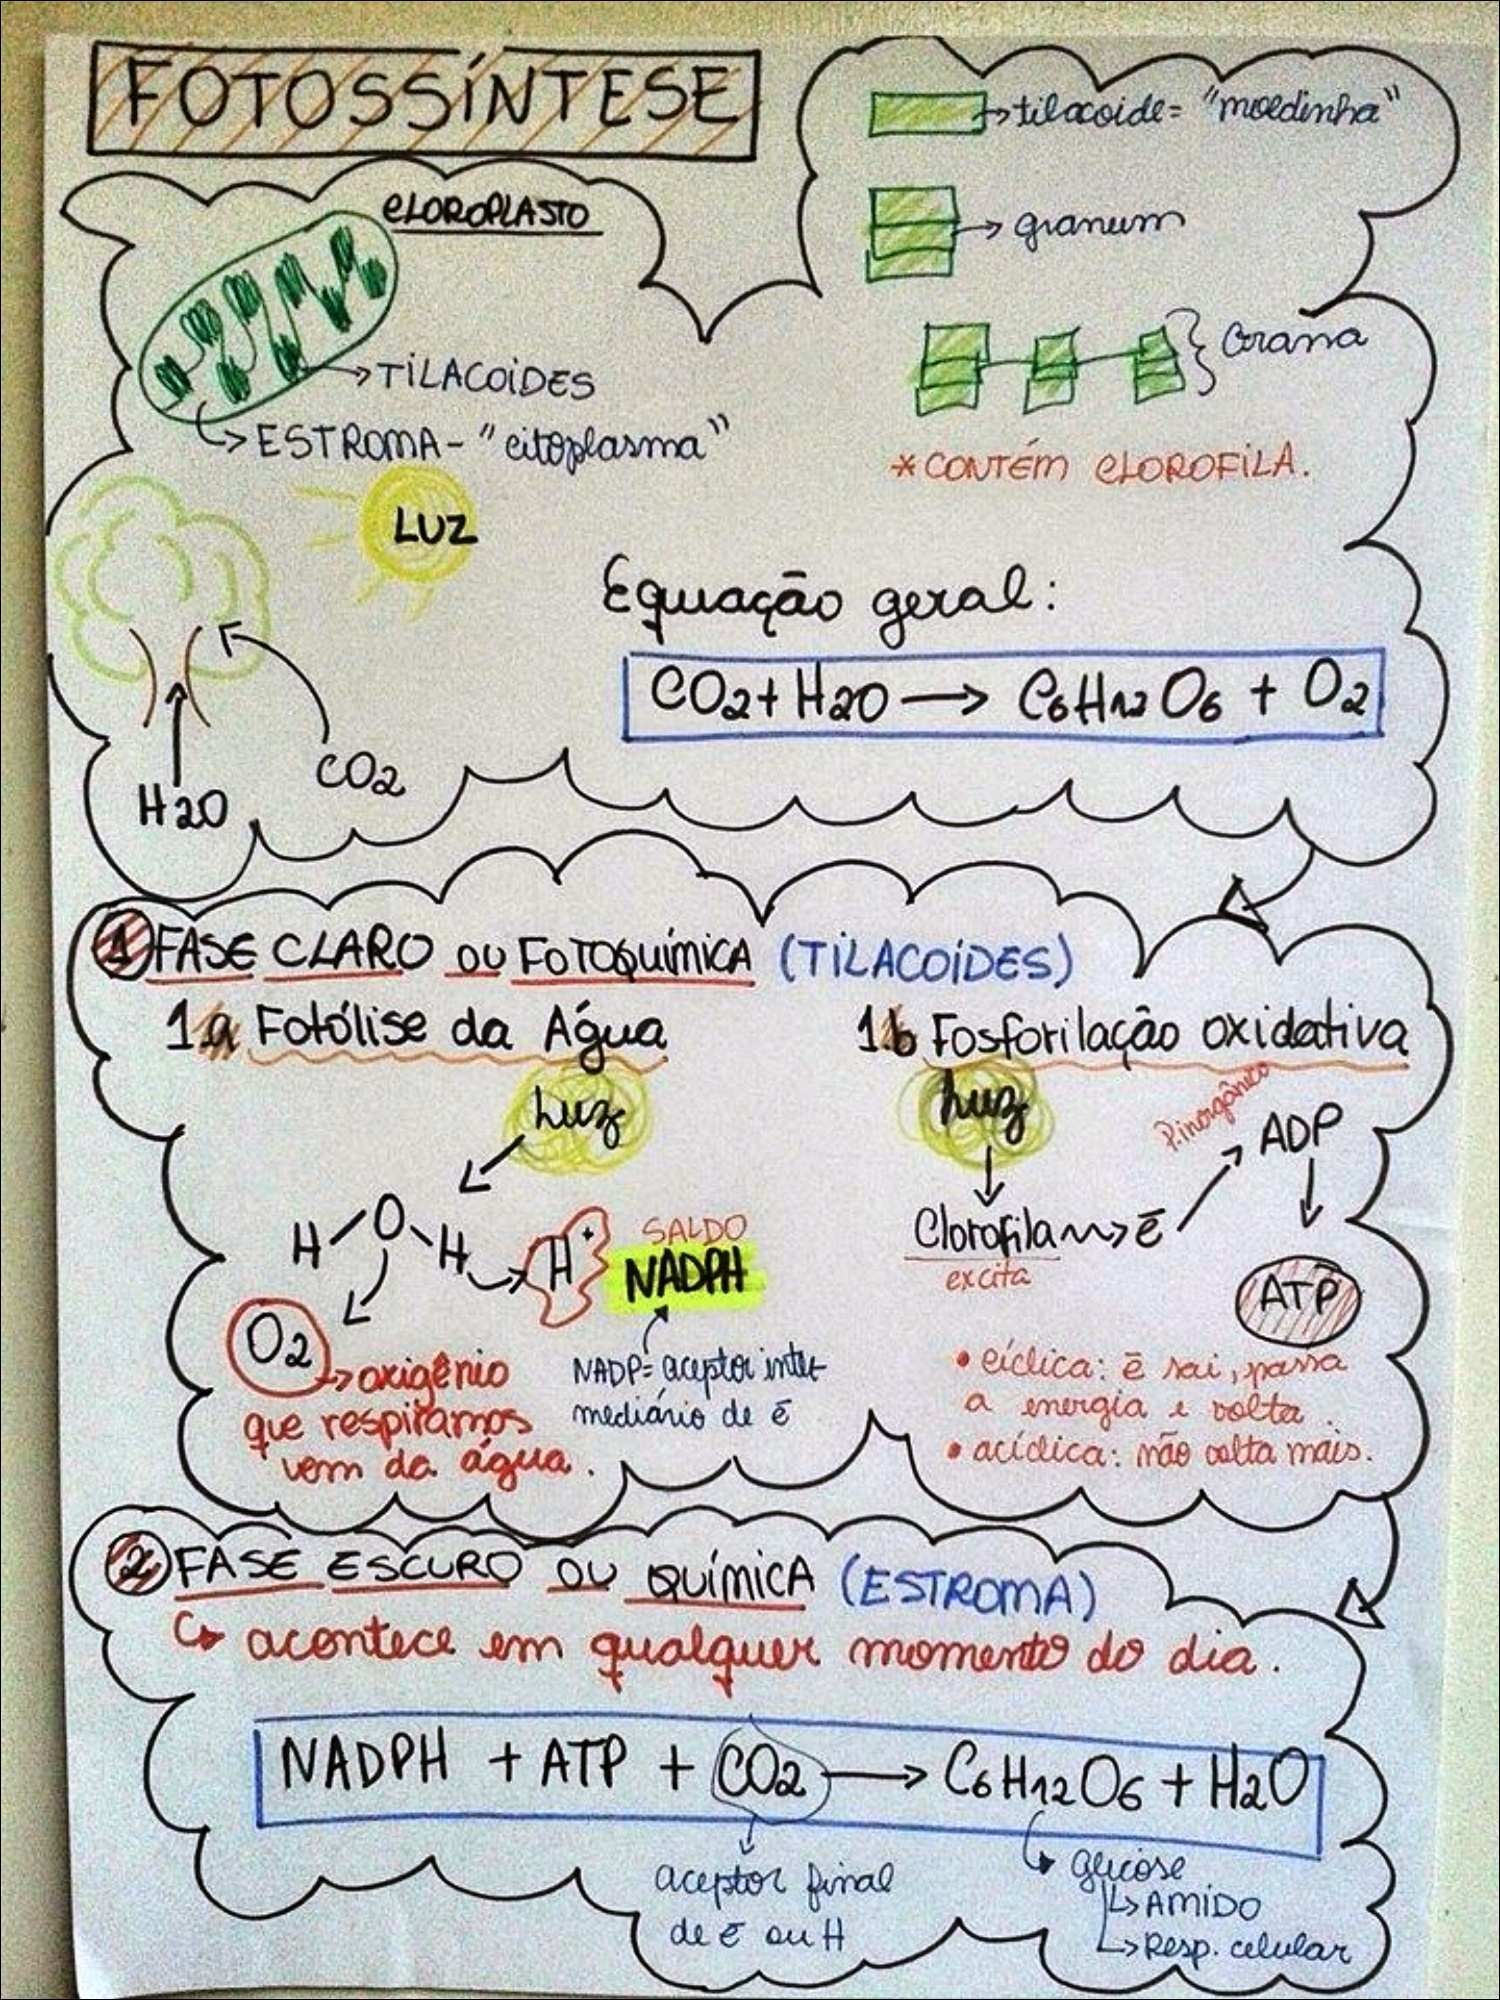 FOTOSSÍNTESE
CLOROPLASTO
TILACOIDES
ESTROMA - "citoplasma"
tilacoide = "moedinha"
granum
Grana
* CONTÉM CLOROFILA.
LUZ
H2O
CO2
Equação geral:
CO2 + H2O → C6H12O6 + O2
1 FASE CLARO OU FOTOQUÍMICA (TILACOIDES)
1.a Fotólise da Água
Luz
H O H
H+
SALDO
NADPH
O2 → oxigênio
que respiramos
vem da água.
NADP = aceptor inter
mediário de é
1.b Fosforilação oxidativa
Luz
P.inorgânico
ADP
Clorofila → é
excita
ATP
• cíclica: é sai, passa
a energia e volta.
• acíclica: não volta mais.
2 FASE ESCURO OU QUÍMICA (ESTROMA)
↳ acontece em qualquer momento do dia.
NADPH + ATP + CO2 → C6H12O6 + H2O
aceptor final
de é ou H
glicose
↳ AMIDO
↳ Resp. celular